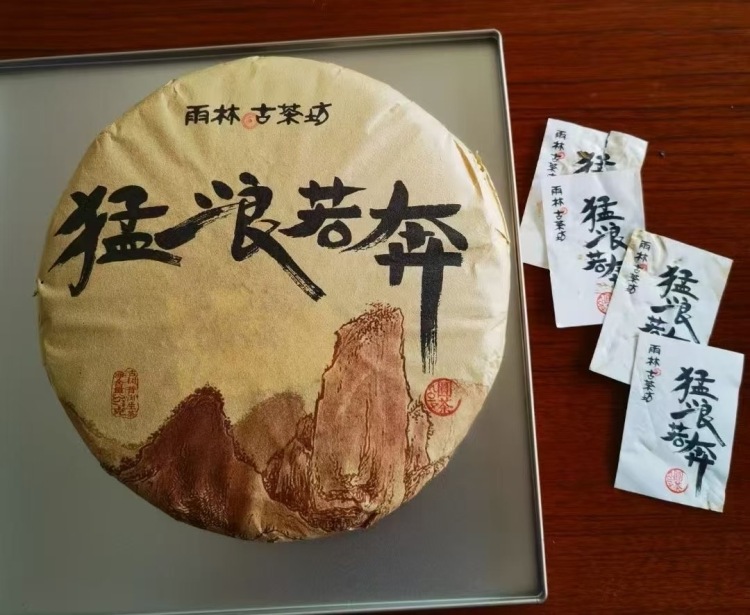 雨林古茶坊
猛浪若奔
圆茶
雨林古茶坊
猛
雨林古茶坊
猛浪若奔
雨林古茶坊
猛浪若
雨林古茶坊
猛浪若奔